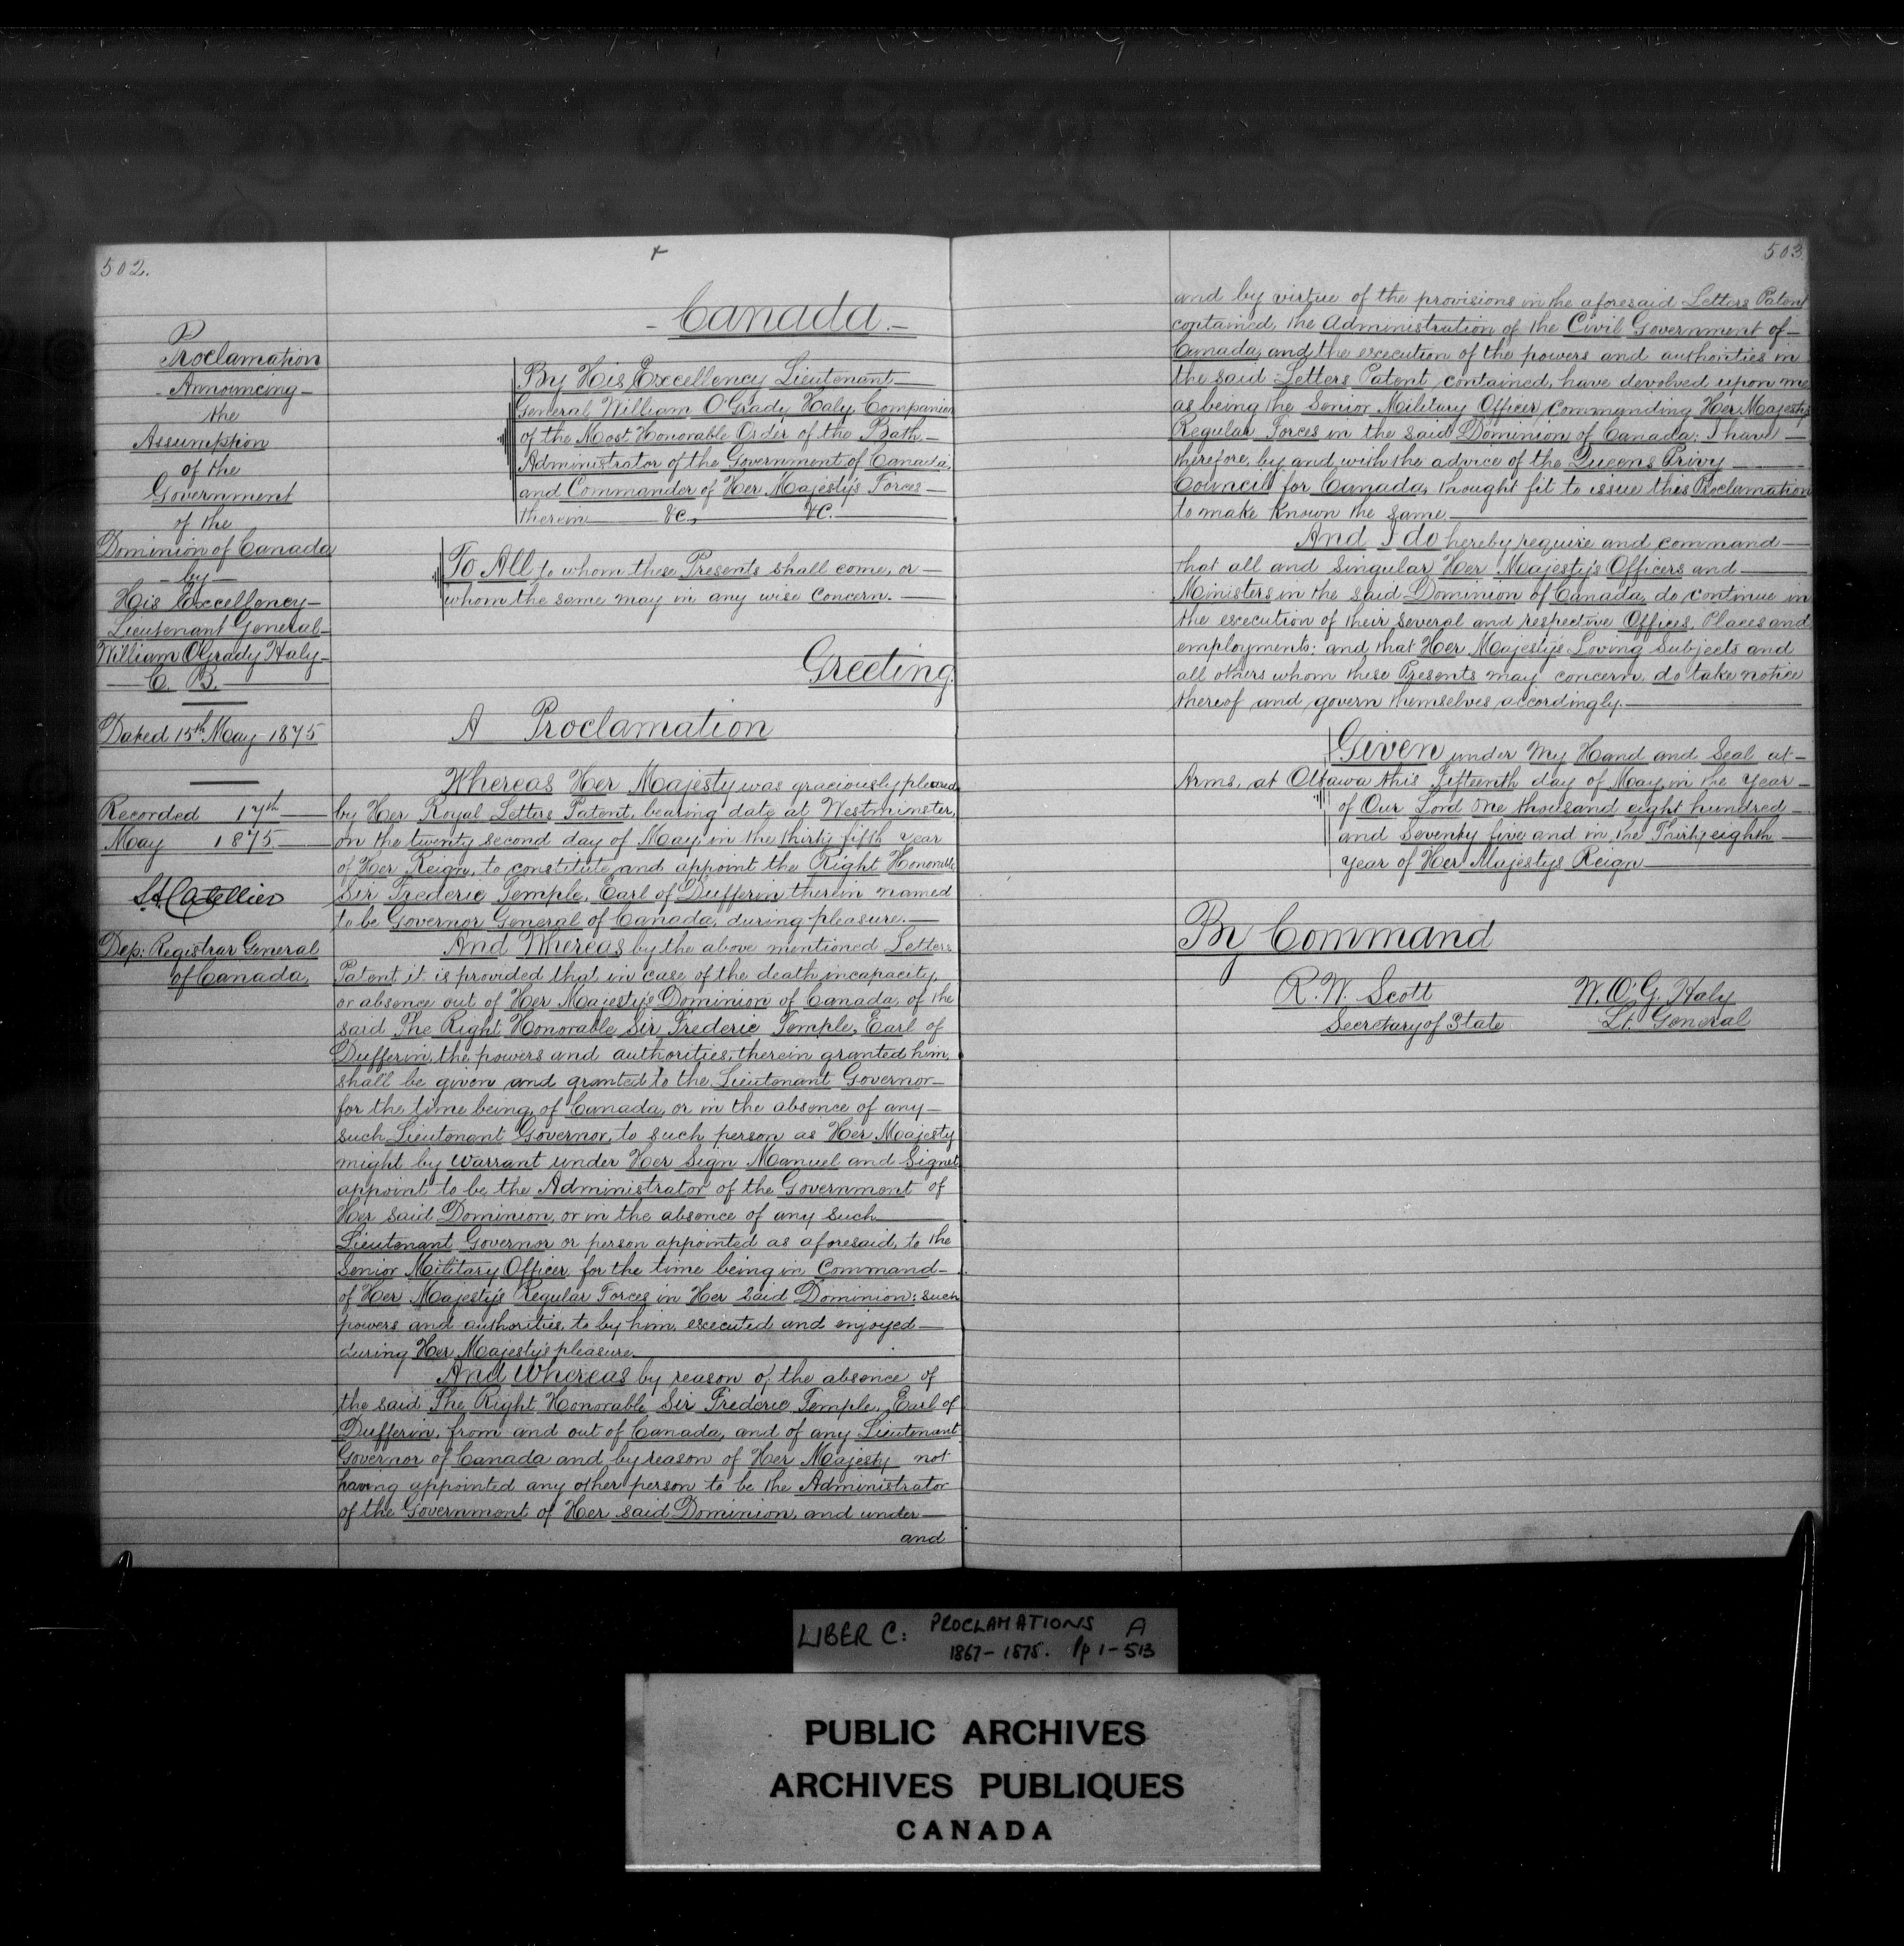 502.
Proclamation
- Announcing -
the
Assumption
of the
Government
of the
Dominion of Canada
- by -
His Excellency -
Lieutenant General -
William O'Grady Haly -
C. B.
Dated 15th May 1875
Recorded 17th
May 1875
Dep: Registrar General
of Canada,
- Canada. -
By His Excellency Lieutenant
General William O'Grady Haly Companion
of the Most Honorable Order of the Bath
Administrator of the Government of Canada,
and Commander of Her Majesty's Forces
therein &c., &c.
To All to whom these Presents shall come, or
whom the same may in any wise concern.
Greeting.
A Proclamation
Whereas Her Majesty was graciously pleased
by Her Royal Letters Patent, bearing date at Westminster,
on the twenty second day of May, in the thirty fifth year
of Her Reign, to constitute and appoint the Right Honorable
Sir Frederic Temple, Earl of Dufferin therein named
to be Governor General of Canada, during pleasure.
And Whereas by the above mentioned Letters
Patent it is provided that in case of the death incapacity,
or absence out of Her Majesty's Dominion of Canada, of the
said The Right Honorable Sir Frederic Temple, Earl of
Dufferin, the powers and authorities, therein granted him,
shall be given and granted to the Lieutenant Governor
for the time being, of Canada, or in the absence of any
such Lieutenant Governor, to such person as Her Majesty
might by Warrant under Her Sign Manuel and Signet
appoint to be the Administrator of the Government of
Her said Dominion, or in the absence of any such
Lieutenant Governor or person appointed as aforesaid, to the
Senior Military Officer for the time being in Command
of Her Majesty's Regular Forces in Her said Dominion: such
powers and authorities, to by him, executed and enjoyed
during Her Majesty's pleasure.
And Whereas by reason of the absence of
the said The Right Honorable Sir Frederic Temple, Earl of
Dufferin, from and out of Canada, and of any Lieutenant
Governor of Canada and by reason of Her Majesty not
having appointed any other person to be the Administrator
of the Government of Her said Dominion, and under
and
503.
and by virtue of the provisions in the aforesaid Letters Patent
contained, the Administration of the Civil Government of
Canada, and the execution of the powers and authorities in
the said Letters Patent contained, have devolved upon me
as being the Senior Military Officer, Commanding Her Majesty's
Regular Forces in the said Dominion of Canada: I have
therefore, by and with the advice of the Queens Privy
Council for Canada, thought fit to issue this Proclamation
to make known the same
And I do hereby require and command
that all and singular Her Majesty's Officers and
Ministers in the said Dominion of Canada, do continue in
the execution of their several and respective Offices, Places and
employments: and that Her Majesty's Loving Subjects and
all others whom these Presents may concern, do take notice
thereof and govern themselves accordingly.
Given under My Hand and Seal at
Arms, at Ottawa this Fifteenth day of May, in the Year
of Our Lord One thousand eight hundred
and Seventy five and in the Thirty eighth
year of Her Majestys Reign
By Command
R. W. Scott
Secretary of State
W. O'G. Haly
Lt. General
LIBER C: PROCLAMATIONS A
1867-1875. Pp 1-513
PUBLIC ARCHIVES
ARCHIVES PUBLIQUES
CANADA